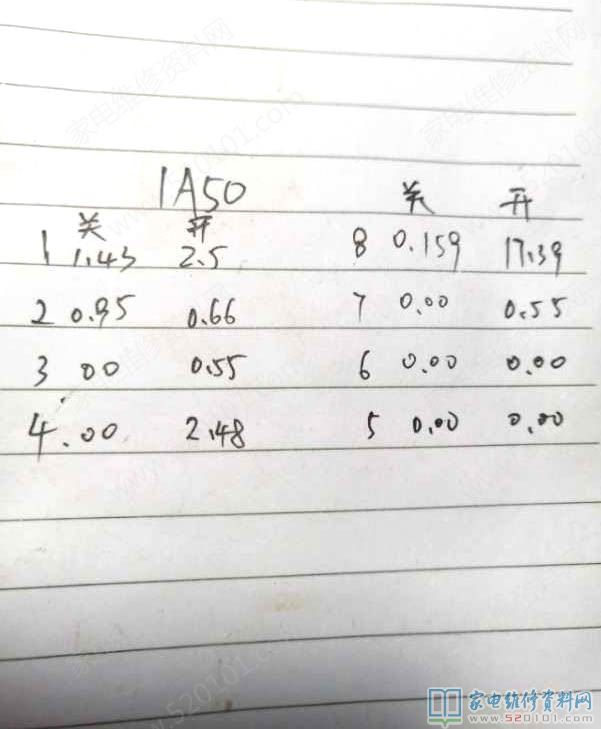 1A50
关 开 关 开
1 1.43 2.5 8 0.159 17.39
2 0.95 0.66 7 0.00 0.55
3 00 0.55 6 0.00 0.00
4.00 2.48 5 0.00 0.00
家电维修资料网
www.520101.com